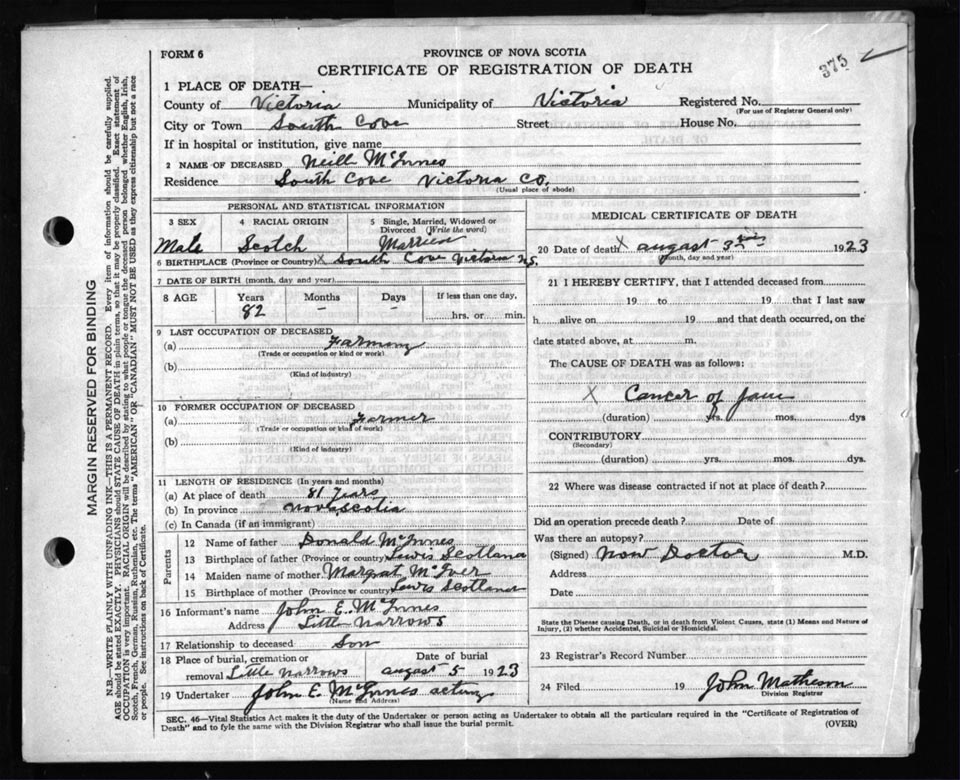 375
FORM 6
PROVINCE OF NOVA SCOTIA
CERTIFICATE OF REGISTRATION OF DEATH
1 PLACE OF DEATH—
County of Victoria Municipality of Victoria Registered No.
(For use of Registrar General only)
City or Town South Cove Street House No.
If in hospital or institution, give name
2 NAME OF DECEASED Neill McInnes
Residence South Cove Victoria Co.
(Usual place of abode)
PERSONAL AND STATISTICAL INFORMATION
3 SEX 4 RACIAL ORIGIN 5 Single, Married, Widowed or
Divorced (Write the word)
Male Scotch Married
6 BIRTHPLACE (Province or Country) X South Cove Victoria N.S.
7 DATE OF BIRTH (month, day and year)
8 AGE Years Months Days If less than one day,
82 - - hrs. or min.
9 LAST OCCUPATION OF DECEASED
(a) Farming
(Trade or occupation or kind or work)
(b)
(Kind of industry)
10 FORMER OCCUPATION OF DECEASED
(a) Farmer
(Trade or occupation or kind of work)
(b)
(Kind of industry)
11 LENGTH OF RESIDENCE (In years and months)
(a) At place of death 81 Years
(b) In province Nova Scotia
(c) In Canada (if an immigrant)
Parents
12 Name of father Donald McInnes
13 Birthplace of father (Province or country) Lewis Scotland
14 Maiden name of mother Margrat McIver
15 Birthplace of mother (Province or country) Lewis Scotland
16 Informant's name John E. McInnes
Address Little Narrows
17 Relationship to deceased Son
18 Place of burial, cremation or Date of burial
removal Little Narrows august 5 1923
19 Undertaker John E. McInnes acting
(Name and Address)
MEDICAL CERTIFICATE OF DEATH
20 Date of death X august 3rd 1923
(Month, day and year)
21 I HEREBY CERTIFY, that I attended deceased from
19 to 19 that I last saw
h alive on 19 and that death occurred, on the
date stated above, at m.
The CAUSE OF DEATH was as follows:
X Cancer of Jaw
(duration) yrs. mos. dys
CONTRIBUTORY
(Secondary)
(duration) yrs. mos. dys
22 Where was disease contracted if not at place of death?
Did an operation precede death? Date of
Was there an autopsy?
(Signed) Now Doctor M.D.
Address
Date
State the Disease causing Death, or in death from Violent Causes, state (1) Means and Nature of
Injury, (2) whether Accidental, Suicidal or Homicidal.
23 Registrar's Record Number
24 Filed 19 John Matheson
Division Registrar
SEC. 46—Vital Statistics Act makes it the duty of the Undertaker or person acting as Undertaker to obtain all the particulars required in the "Certificate of Registration of
Death" and to fyle the same with the Division Registrar who shall issue the burial permit.
(OVER)
MARGIN RESERVED FOR BINDING
N.B—WRITE PLAINLY WITH UNFADING INK—THIS IS A PERMANENT RECORD. Every item of information should be carefully supplied.
AGE should be stated EXACTLY. PHYSICIANS should STATE CAUSE OF DEATH in plain terms, so that it may be properly classified. Exact statement of
OCCUPATION is very important. RACIAL ORIGIN will be described by stating to what people or tongue the deceased person belonged whether English, Irish,
Scotch, French, German, Russian, Ruthenian, etc. The terms "AMERICAN" OR "CANADIAN" MUST NOT BE USED as they express citizenship but not a race
or people. See instructions on back of Certificate.